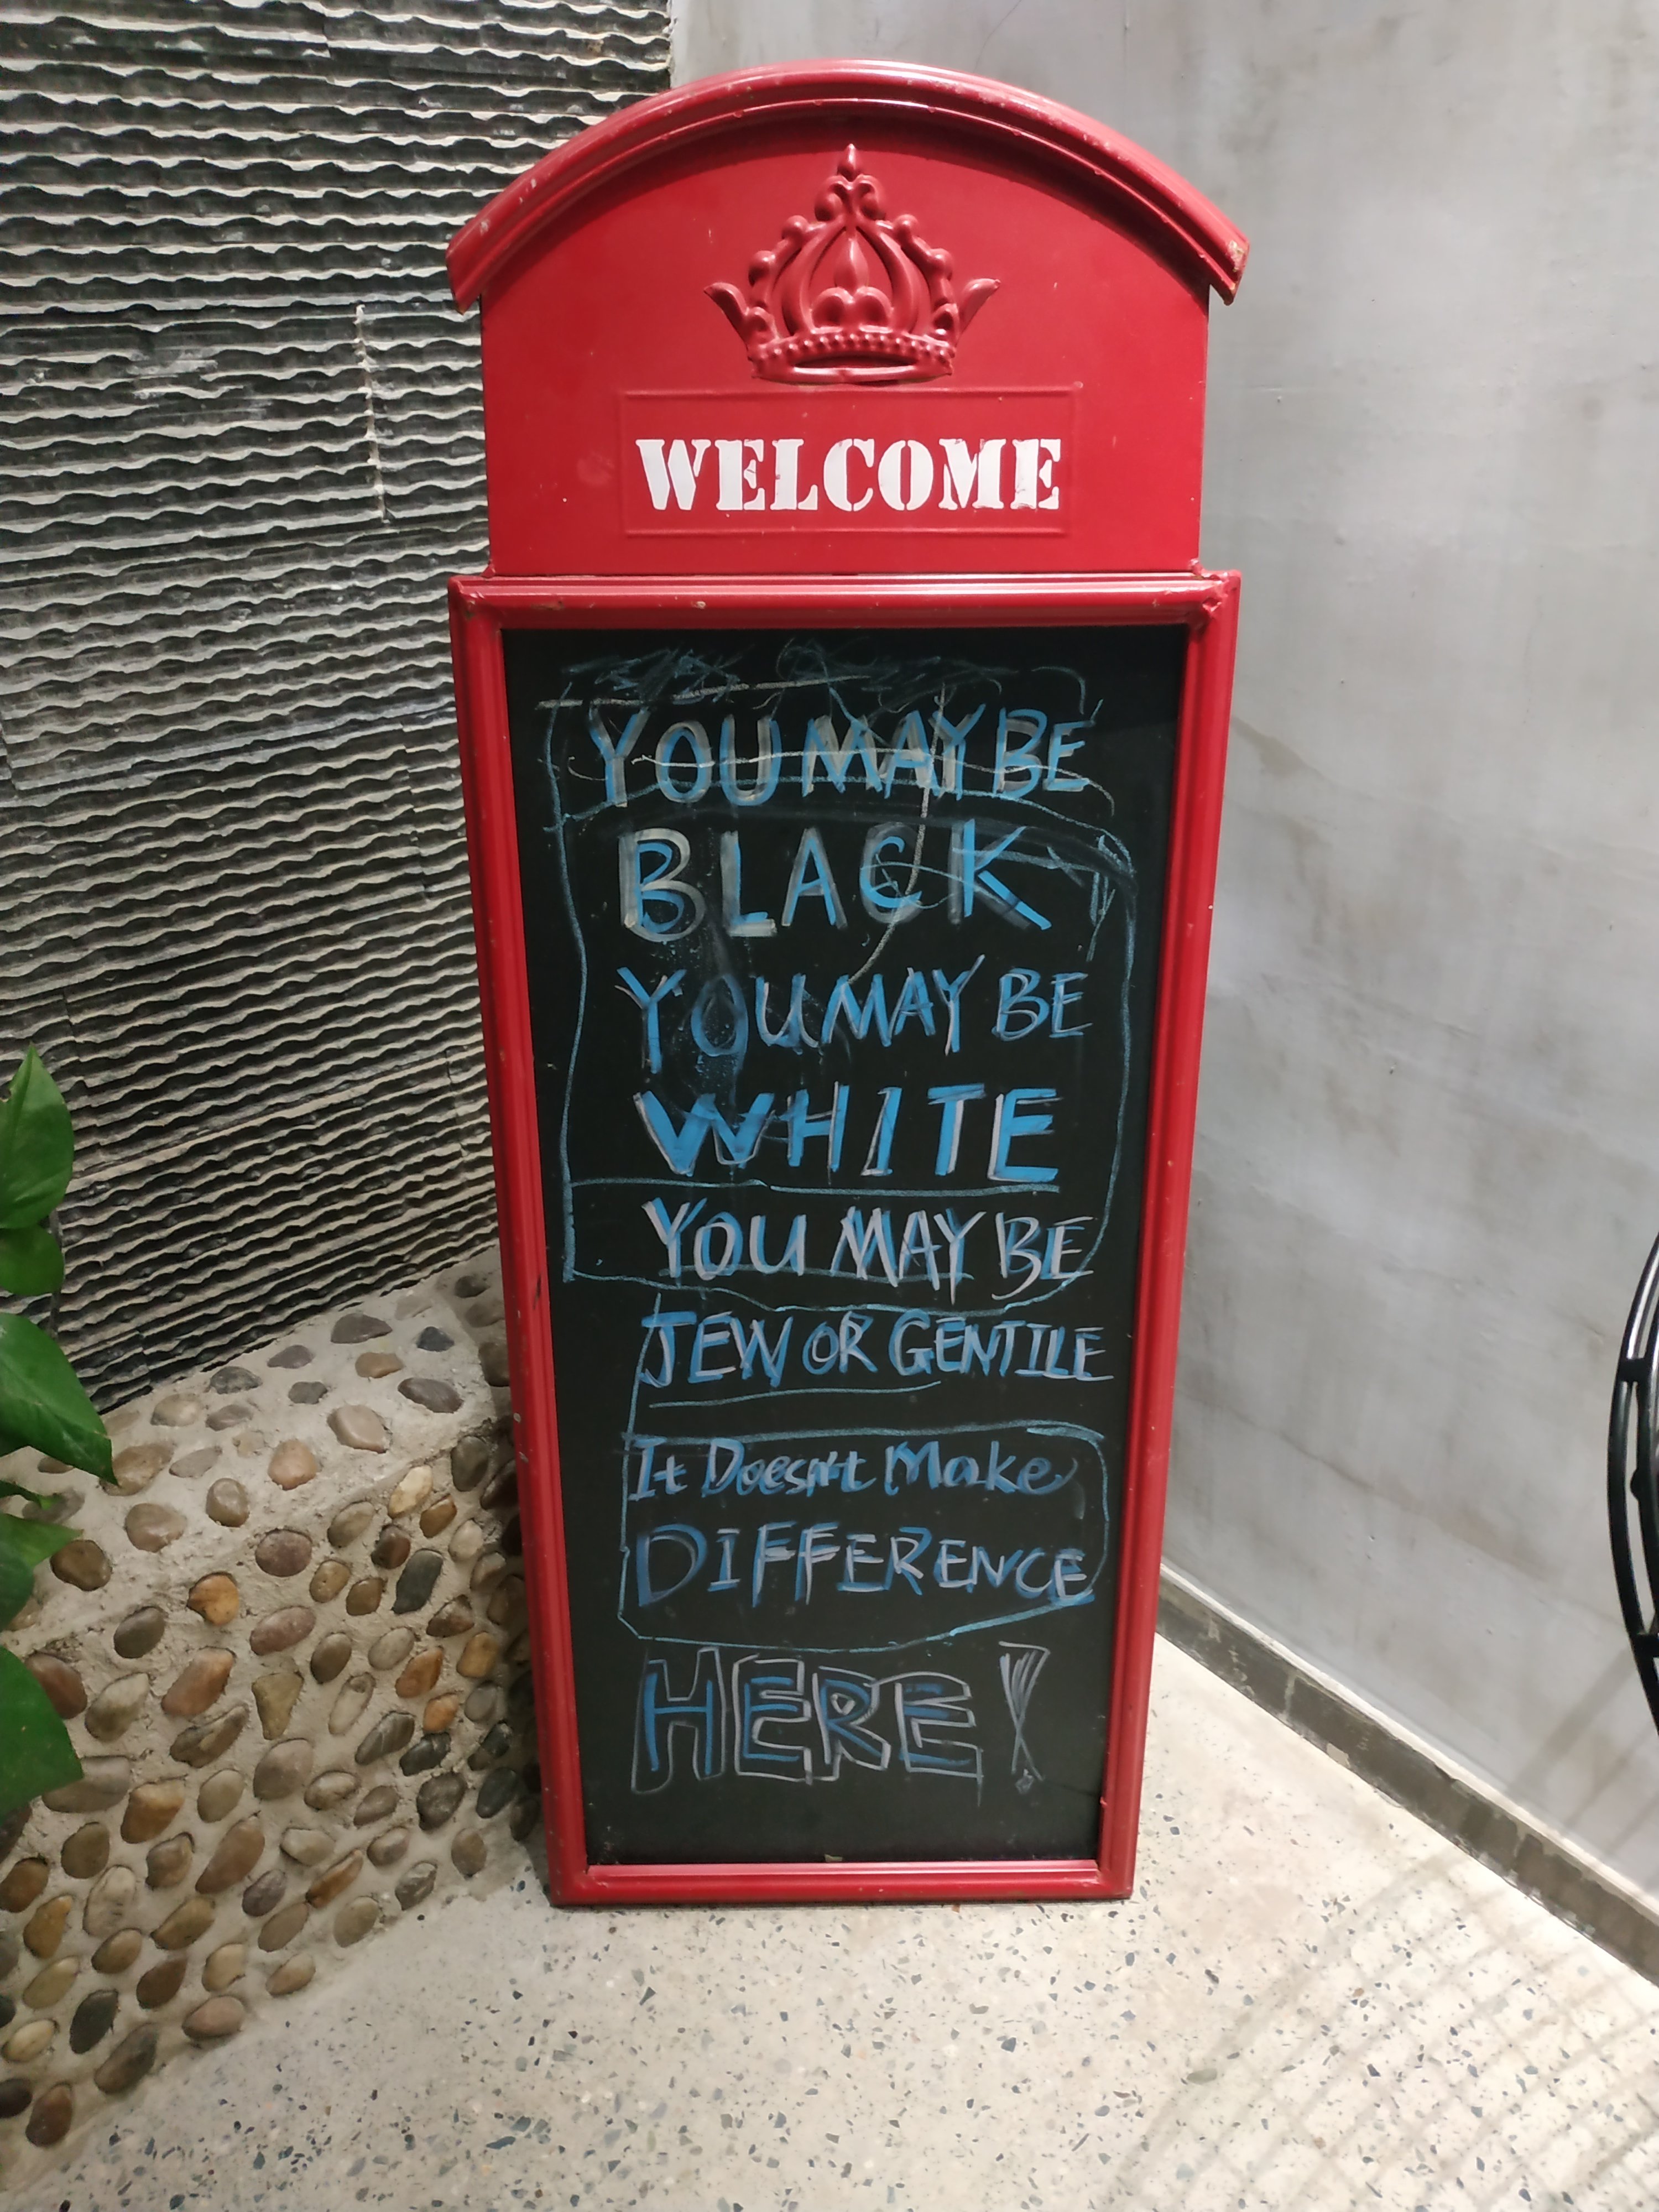 WELCOME
YOU MAY BE
BLACK
YOU MAY BE
WHITE
YOU MAY BE
JEW OR GENTILE
It Doesn't Make
DIFFERENCE
HERE!